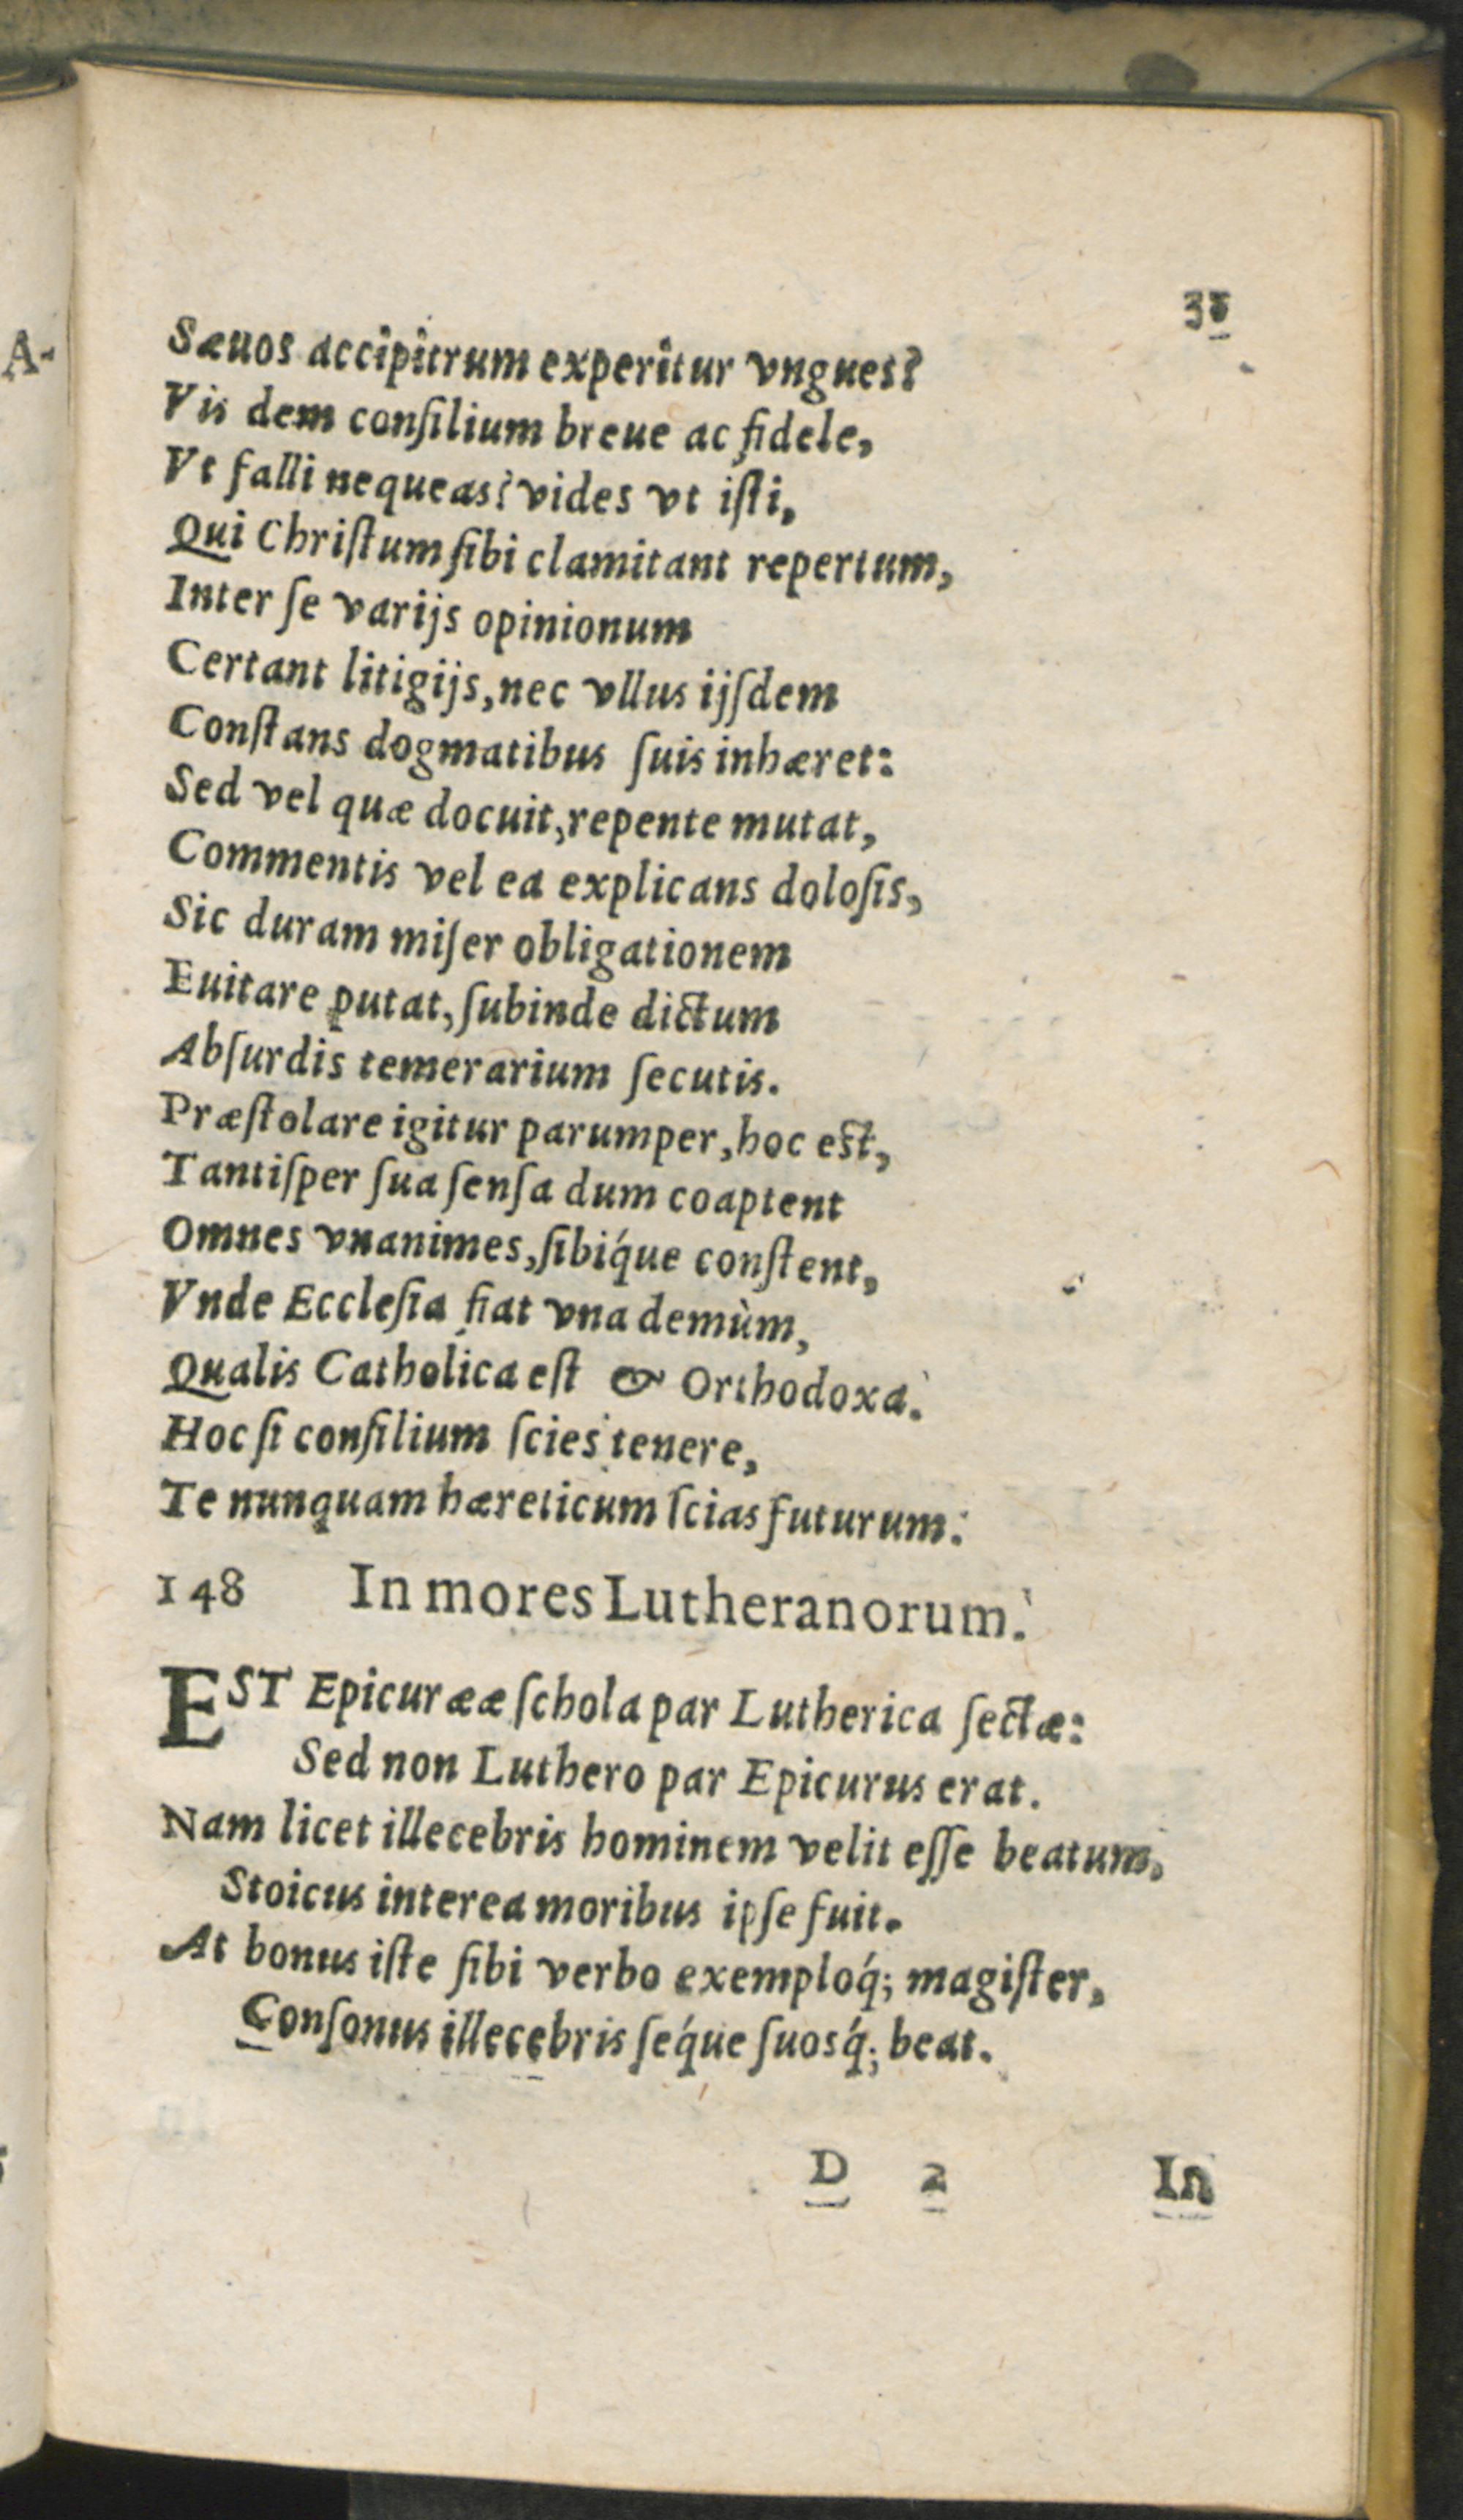 Sæuos accipitrum experitur vngues?
Vis dem conſilium breue ac fidele,
Vt falli nequeas? vides vt iſti,
Qui Chriſtum ſibi clamitant repertum,
Inter ſe varijs opinionum
Certant litigijs, nec vllus ijſdem
Conſtans dogmatibus ſuis inhæret:
Sed vel quæ docuit, repente mutat,
Commentis vel ea explicans doloſis,
Sic duram miſer obligationem
Euitare putat, ſubinde dictum
Abſurdis temerarium ſecutis.
Præſtolare igitur parumper, hoc eſt,
Tantiſper ſua ſenſa dum coaptent
Omnes vnanimes, ſibiq́ue conſtent,
Vnde Eccleſia fiat vna demùm,
Qualis Catholica eſt & Orthodoxa.
Hoc ſi conſilium ſcies tenere,
Te nunquam hæreticum ſcias futurum.
148 In mores Lutheranorum.
EST Epicurææ ſchola par Lutherica ſectæ:
Sed non Luthero par Epicurus erat.
Nam licet illecebris hominem velit eſſe beatum,
Stoicus interea moribus ipſe fuit.
At bonus iſte ſibi verbo exemploq́; magiſter,
Conſonus illecebris ſeq́ue ſuosq́; beat.
D 2 In
A-